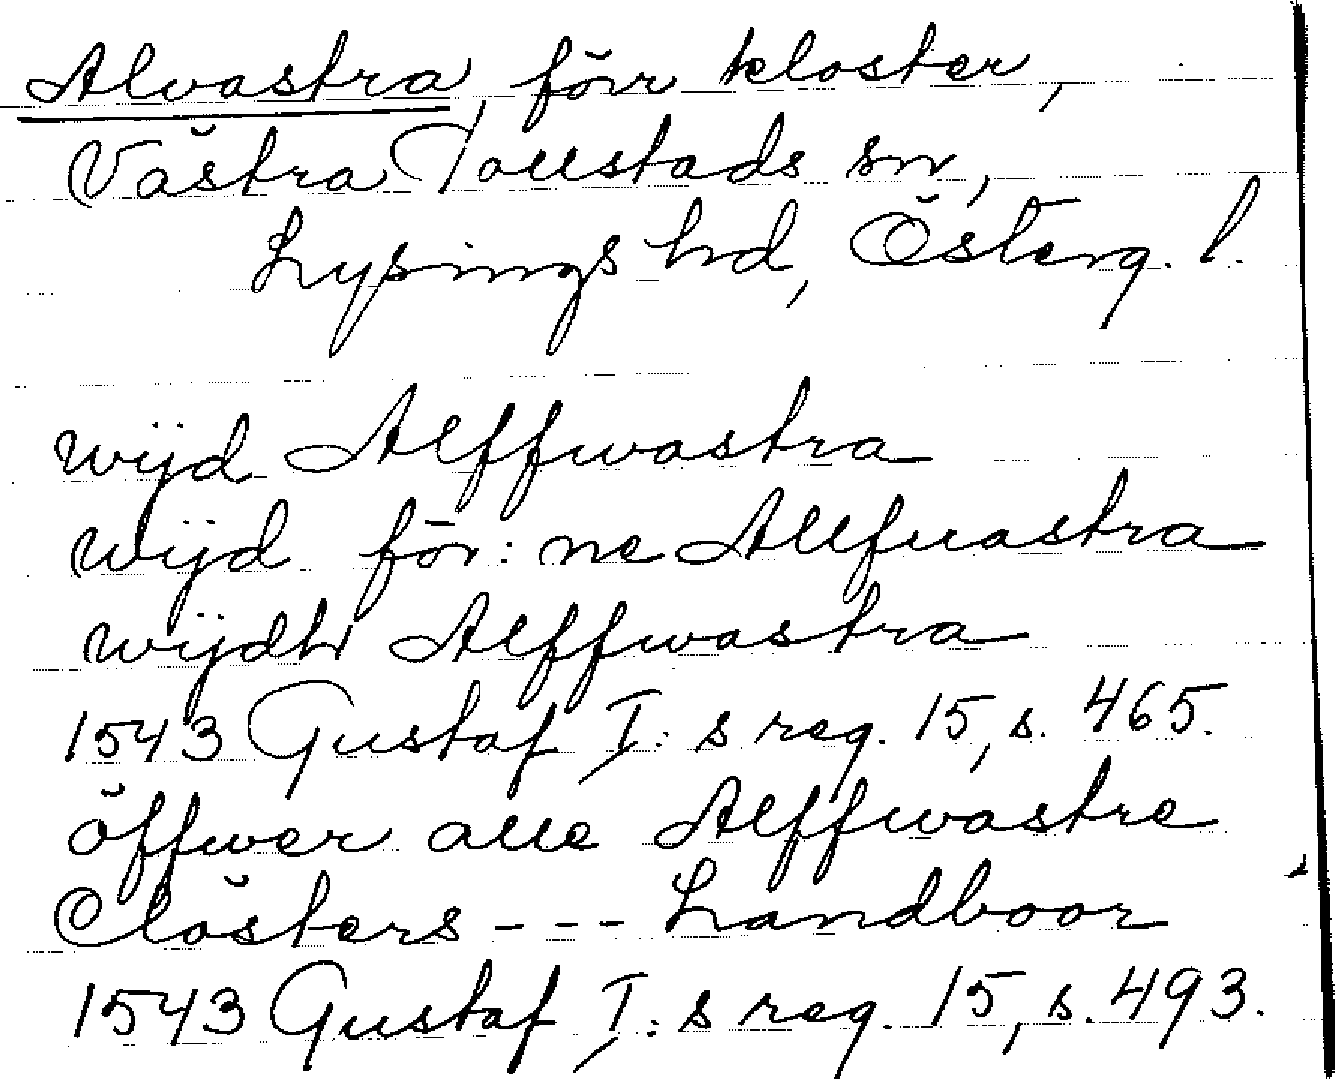 Alvastra, förr kloster,
Västra Tollstads sn,
Lysings hd, Österg. l.
wijd Alffwastra
wijd för: ne Allfuastra
wijdh Alffwastra
1543 Gustaf I: s reg. 15, s. 465.
öffwer alle Alffwastre
Clösters --- Landboor
1543 Gustaf I: s reg. 15, s. 493.